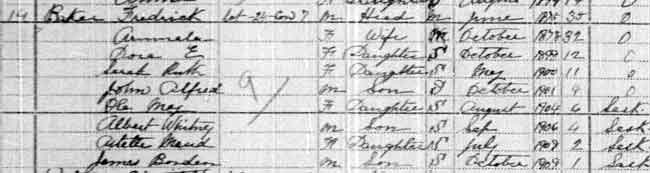 19 Baker Fredrick Lot-24-Con 7 M Head M June 1875 35 O
F Wife M October 1878 32 O
Dora E F Daughter S October 1899 12 O
Sarah Ruth F Daughter S May 1900 11 O
John Alfred M Son S October 1901 9 O
Ola May F Daughter S August 1904 6 Sask
Albert Whitney M Son S Sep 1906 4 Sask
Maud F Daughter S July 2 Sask
James Borden M Son S October 1909 1 Sask